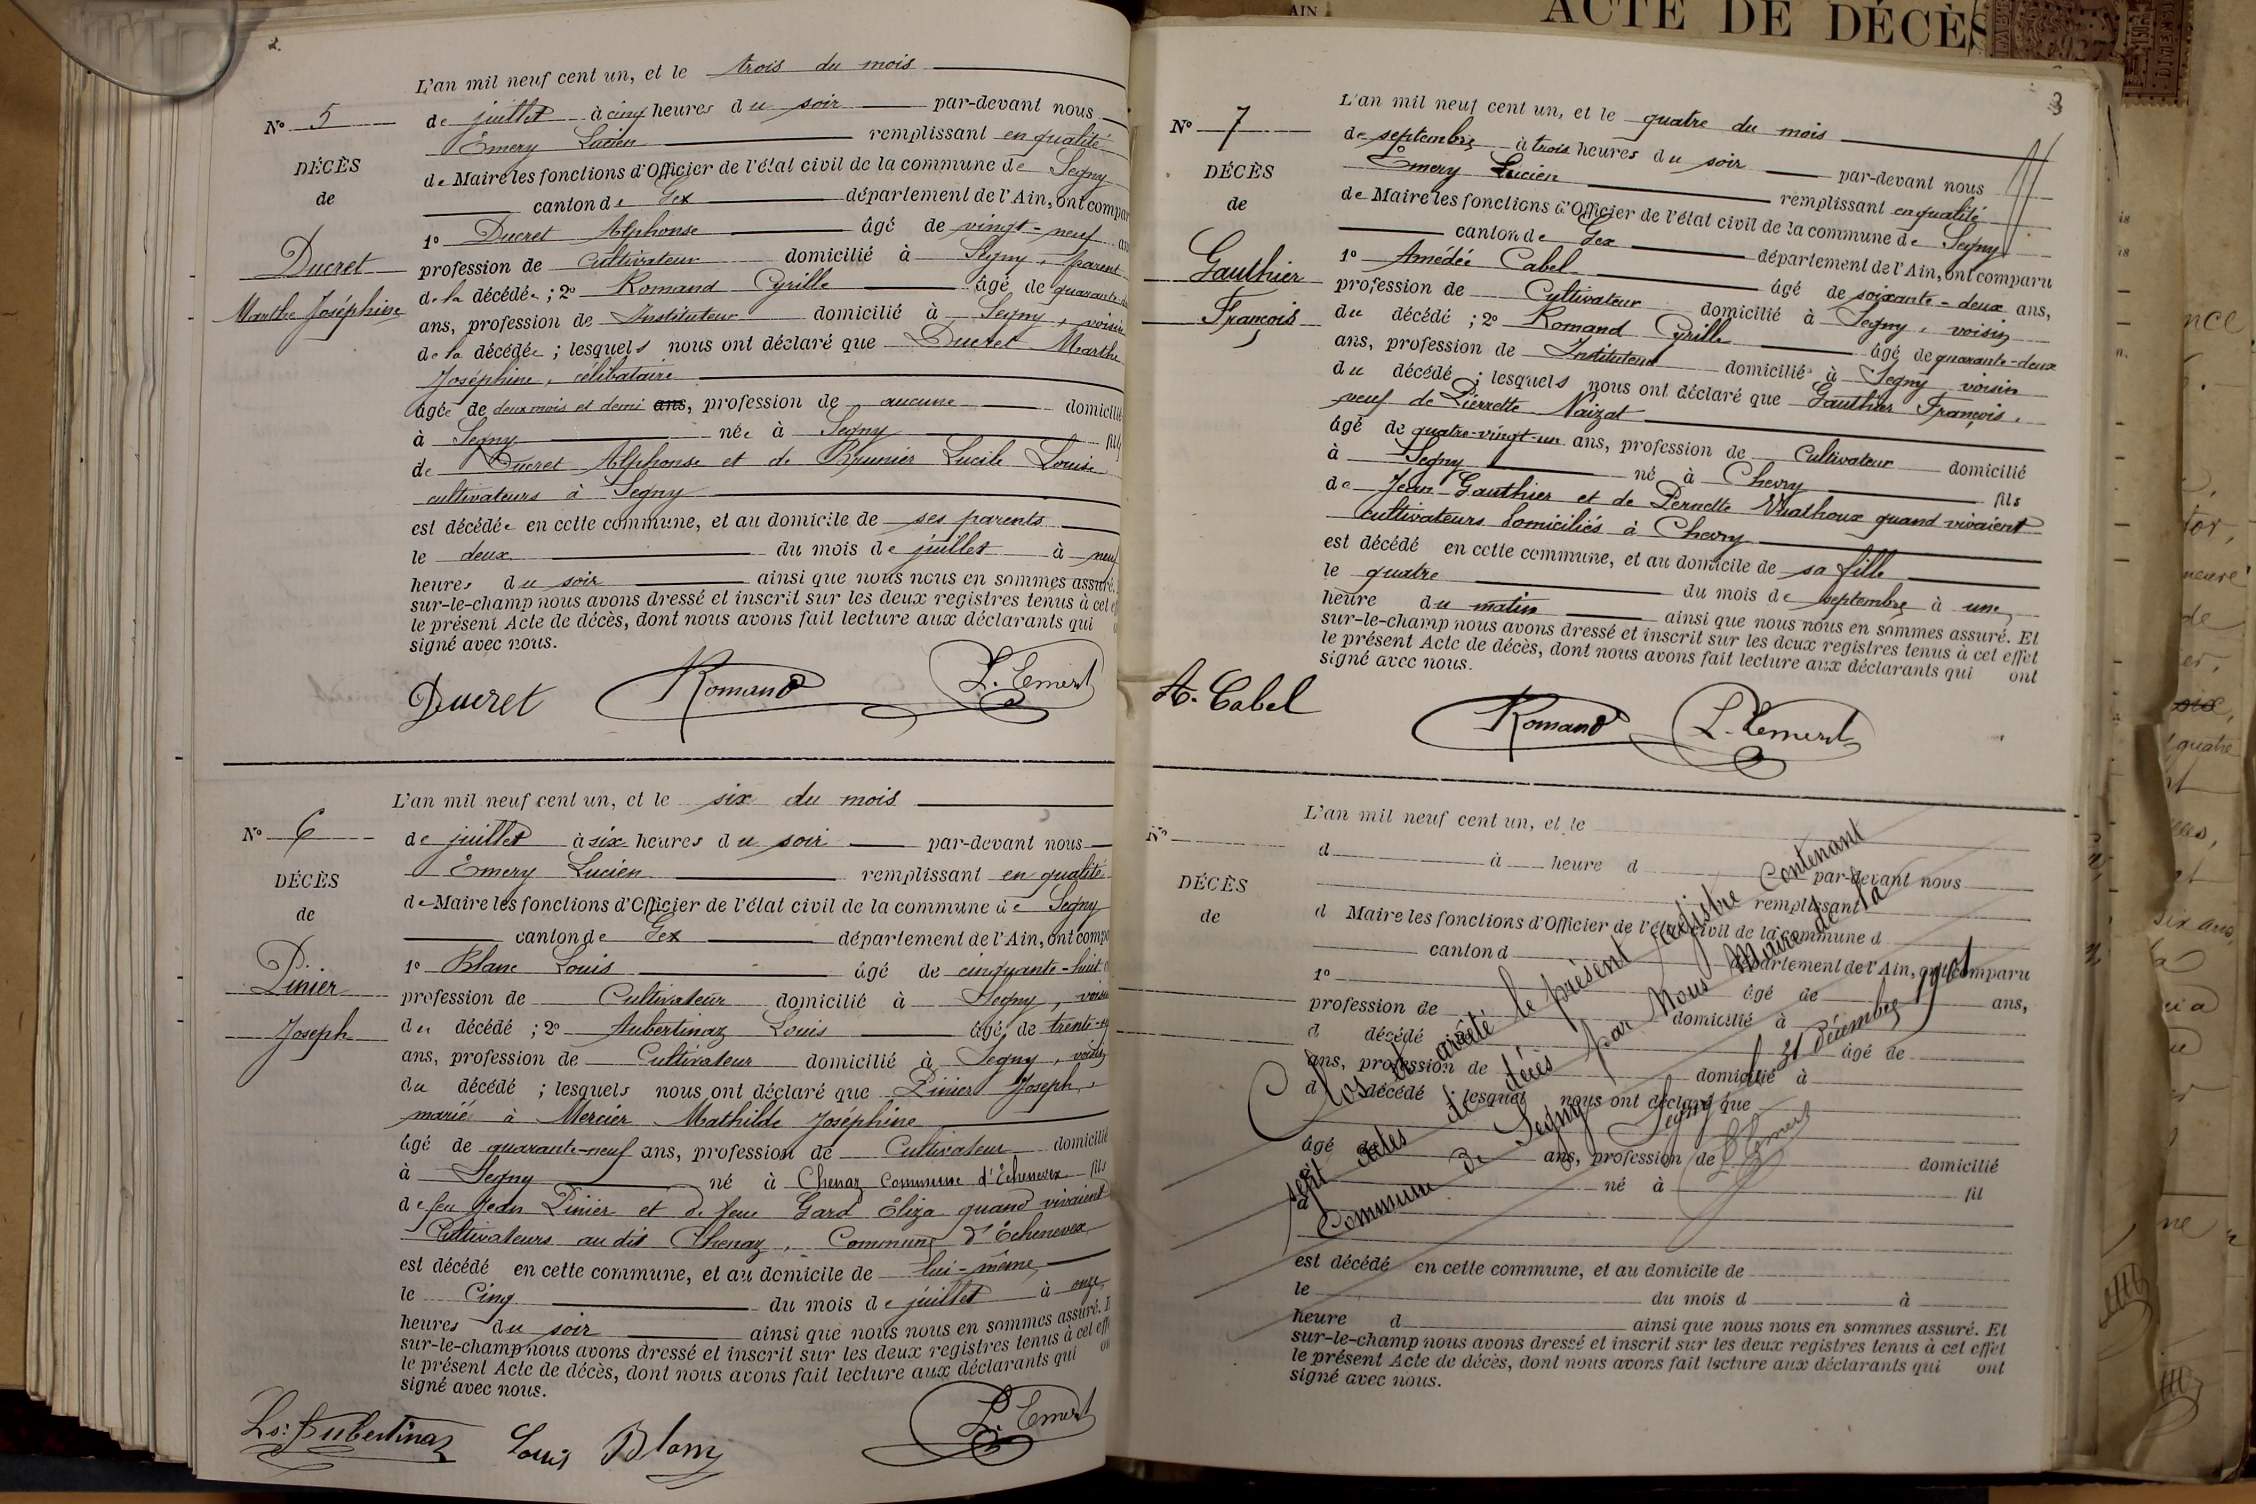 2.
L'an mil neuf cent un, et le trois du mois
N° 5
de juillet à cinq heures du soir par-devant nous
Emery Lucien remplissant en qualité
DÉCÈS
de Maire les fonctions d'Officier de l'état civil de la commune de Segny
de
canton de Gex département de l'Ain, ont compar
1° Ducret Alphonse âgé de vingt-neuf an
Ducret
profession de Cultivateur domicilié à Segny, parent
Marthe Joséphine
de la décédée ; 2° Romand Cyrille âgé de quarante-d
ans, profession de Instituteur domicilié à Segny, voisin
de la décédée ; lesquels nous ont déclaré que Ducret Marthe
Joséphine, célibataire
âgée de deux mois et demi ans, profession de aucune domicilié
à Segny née à Segny fill
de Ducret Alphonse et de Brunier Lucile Louise
cultivateurs à Segny
est décédée en cette commune, et au domicile de ses parents
le deux du mois de juillet à neuf
heures du soir ainsi que nous nous en sommes assuré.
sur-le-champ nous avons dressé et inscrit sur les deux registres tenus à cet ef
le présent Acte de décès, dont nous avons fait lecture aux déclarants qui o
signé avec nous.
Ducret Romand L. Emery
L'an mil neuf cent un, et le six du mois
N° 6
de juillet à six heures du soir par-devant nous
Emery Lucien remplissant en qualité
DÉCÈS
de Maire les fonctions d'Officier de l'état civil de la commune de Segny
de
canton de Gex département de l'Ain, ont comp
1° Blanc Louis âgé de cinquante-huit
Pinier
profession de Cultivateur domicilié à Segny, voisin
Joseph
du décédé ; 2° Aubertinaz Louis âgé de trente-
ans, profession de Cultivateur domicilié à Segny, voisin
du décédé ; lesquels nous ont déclaré que Pinier Joseph,
marié à Mercier Mathilde Joséphine
âgé de quarante-neuf ans, profession de Cultivateur domicilié
à Segny né à Chenaz Commune d'Echenevex fils
de feu Jean Pinier et de feue Gard Eliza quand vivaient
Cultivateurs au dit Chenaz, Commune d'Echenevex
est décédé en cette commune, et au domicile de lui-même
le Cinq du mois de juillet à onze
heures du soir ainsi que nous nous en sommes assuré. E
sur-le-champ nous avons dressé et inscrit sur les deux registres tenus à cet eff
le présent Acte de décès, dont nous avons fait lecture aux déclarants qui on
signé avec nous.
Ls: Aubertinaz Louis Blanc L. Emery
AIN
ACTE DE DÉCÈS
3
L'an mil neuf cent un, et le quatre du mois
N° 7
de septembre à trois heures du soir par-devant nous
Emery Lucien remplissant en qualité
DÉCÈS
de Maire les fonctions d'Officier de l'état civil de la commune de Segny
de
canton de Gex département de l'Ain, ont comparu
1° Amédée Cabel âgé de soixante-deux ans,
Gauthier
profession de Cultivateur domicilié à Segny, voisin
François
du décédé ; 2° Romand Cyrille âgé de quarante-deux
ans, profession de Instituteur domicilié à Segny voisin
du décédé ; lesquels nous ont déclaré que Gauthier François,
veuf de Pierrette Naizat
âgé de quatre-vingt-un ans, profession de Cultivateur domicilié
à Segny né à Chevry fils
de Jean Gauthier et de Pernette Vuathoux quand vivaient
cultivateurs domiciliés à Chevry
est décédé en cette commune, et au domicile de sa fille
le quatre du mois de septembre à une
heure du matin ainsi que nous nous en sommes assuré. Et
sur-le-champ nous avons dressé et inscrit sur les deux registres tenus à cet effet
le présent Acte de décès, dont nous avons fait lecture aux déclarants qui ont
signé avec nous.
A. Cabel Romand L. Emery
L'an mil neuf cent un, et le
N°
d à heure d par-devant nous
remplissant
DÉCÈS
d Maire les fonctions d'Officier de l'état civil de la commune d
de
canton d département de l'Ain, ont comparu
1° âgé de ans,
profession de domicilié à
d décédé âgé de
ans, profession de domicilié à
d décédé ; lesquel nous ont déclaré que
âgé de ans, profession de domicilié
à né à fil
est décédé en cette commune, et au domicile de
le du mois d à
heure d ainsi que nous nous en sommes assuré. Et
sur-le-champ nous avons dressé et inscrit sur les deux registres tenus à cet effet
le présent Acte de décès, dont nous avons fait lecture aux déclarants qui ont
signé avec nous.
Clos et arrêté le présent registre Contenant
sept actes de décès par Nous Maire de la
Commune de Segny
Segny le 31 Décembre 1901
L. Emery